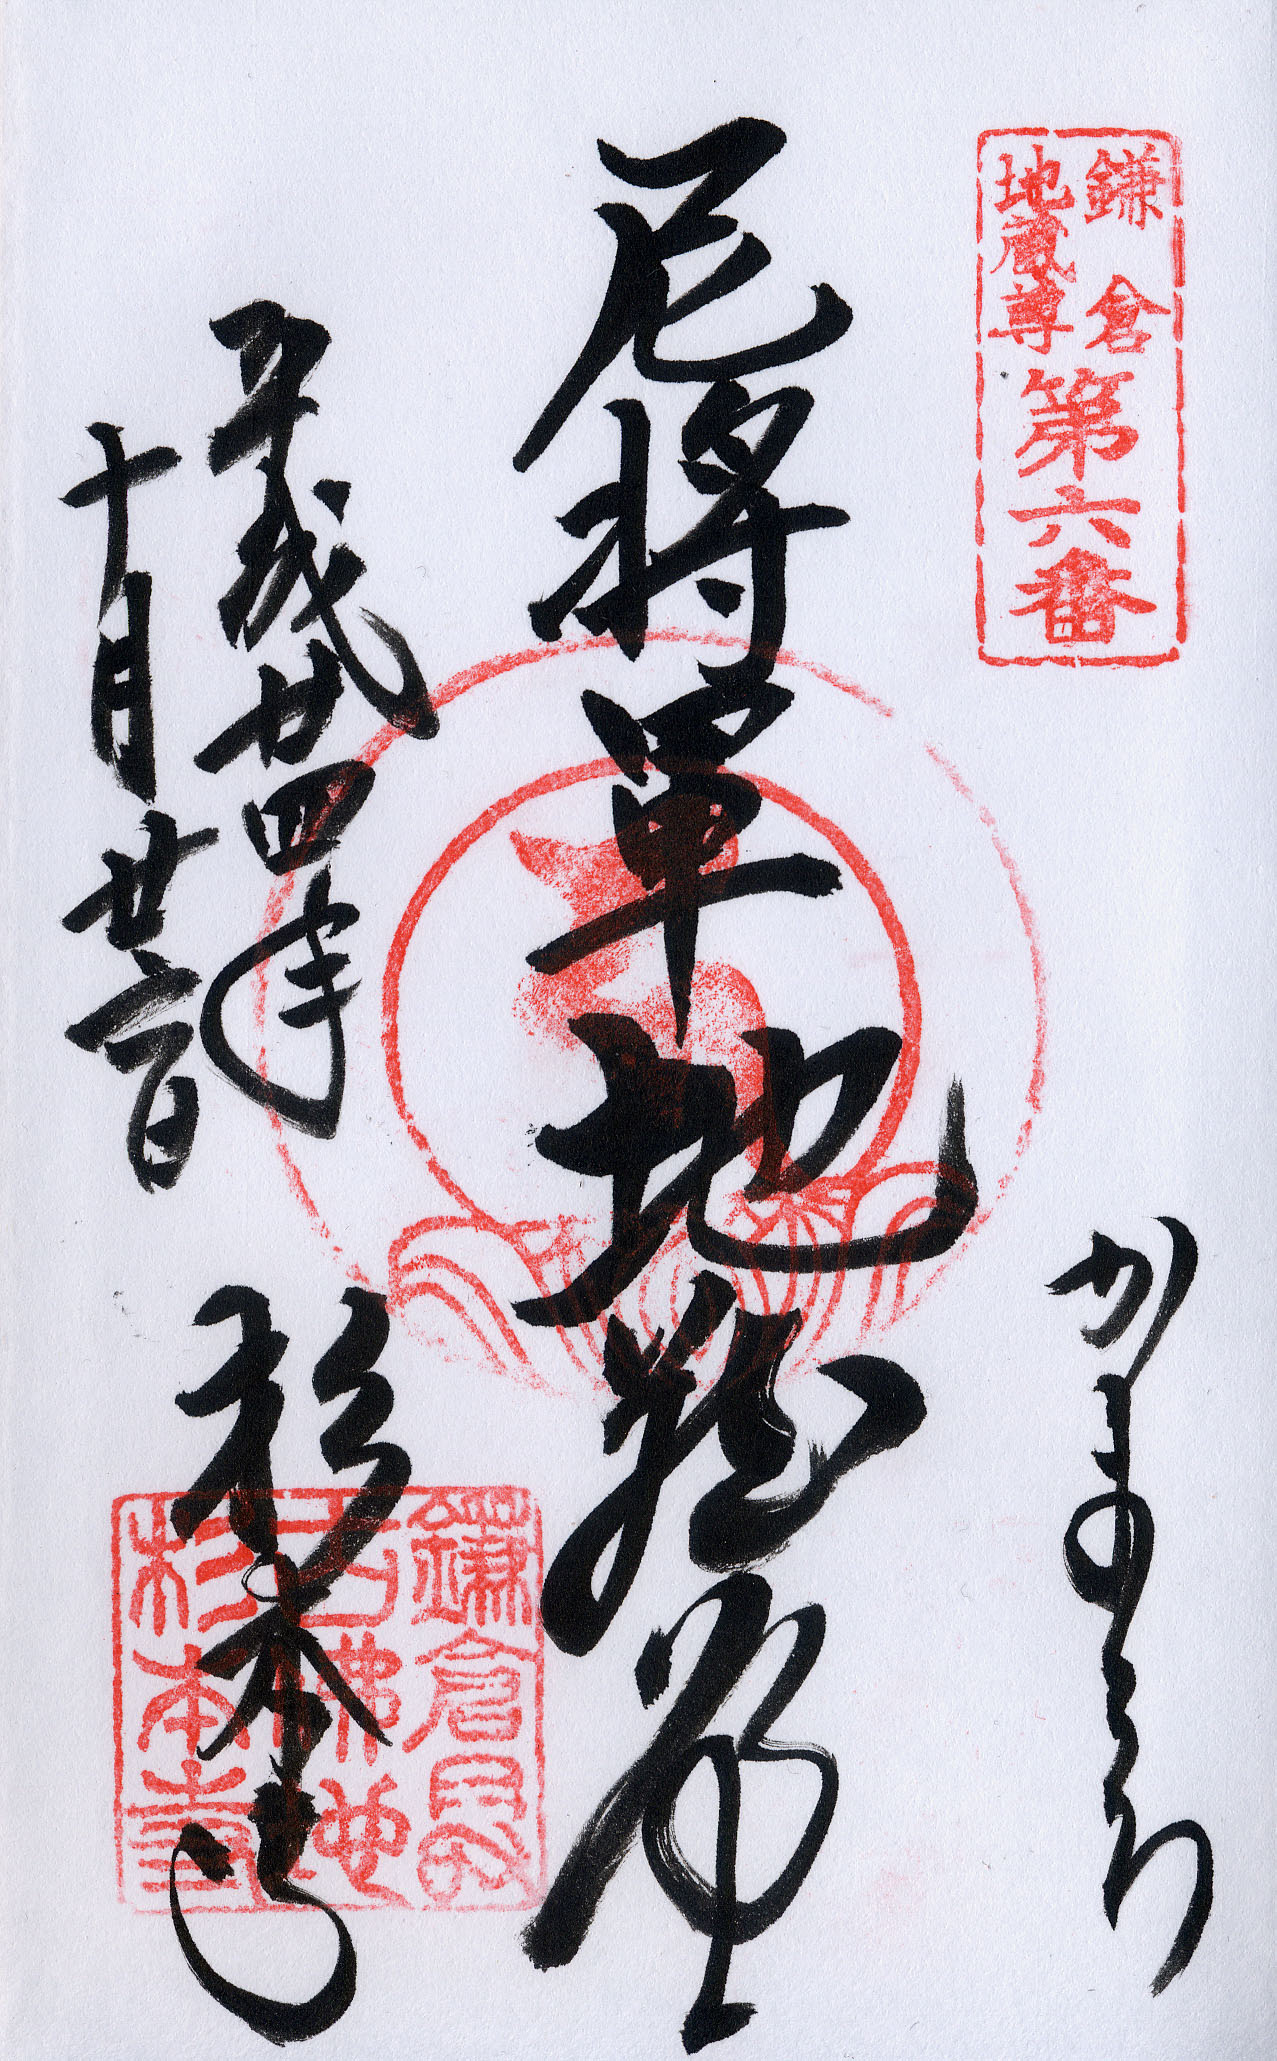 鎌倉
地蔵尊
第六番
かまくら
尼将軍地蔵尊
平成廿四年
十月廿六日
杉本寺
鎌倉最
古佛地
杉本寺